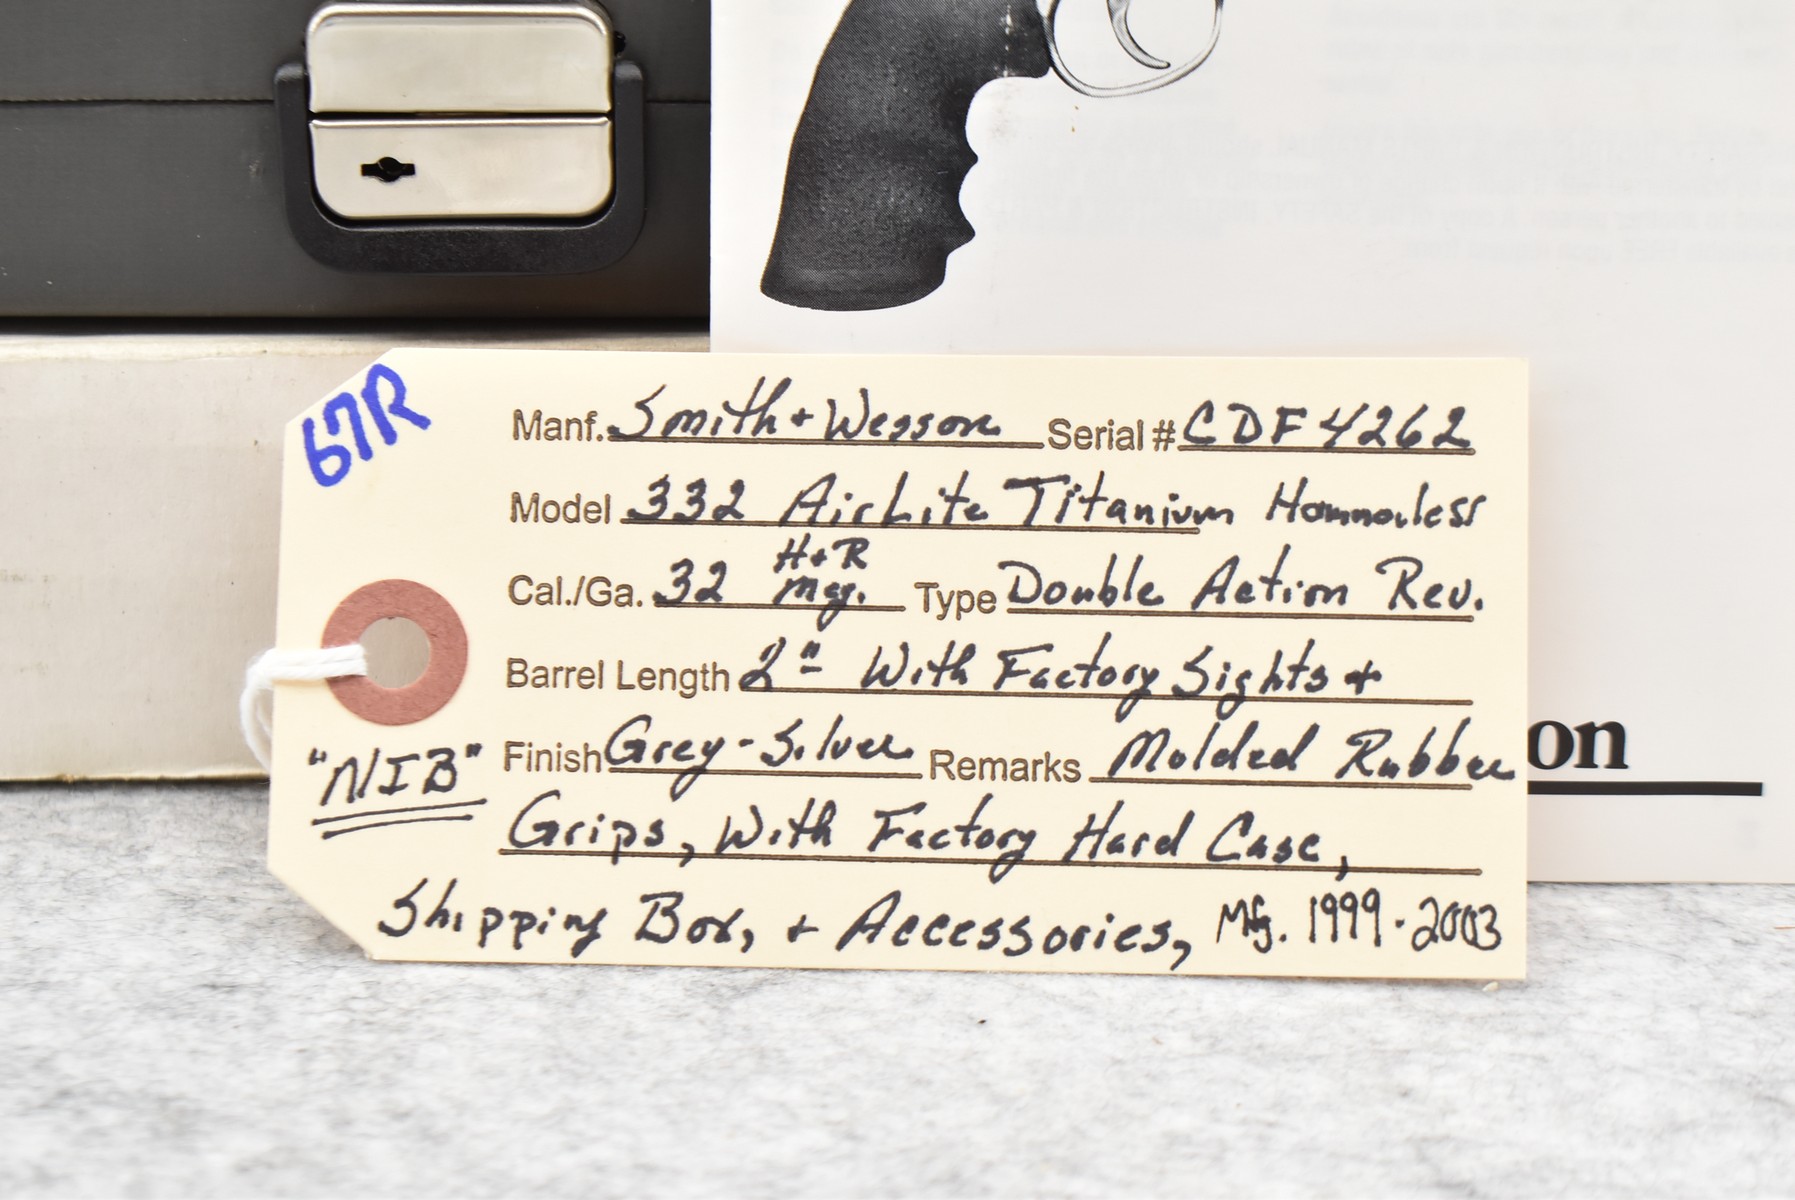 67R
Manf. Smith + Wesson Serial # CDF4262
Model 332 AirLite Titanium Hammerless
Cal./Ga. 32 H+R Mag. Type Double Action Rev.
Barrel Length 2" With Factory Sights +
"NIB" Finish Grey-Silver Remarks Molded Rubber
Grips, With Factory Hard Case,
Shipping Box, + Accessories, Mfg. 1999-2003
on